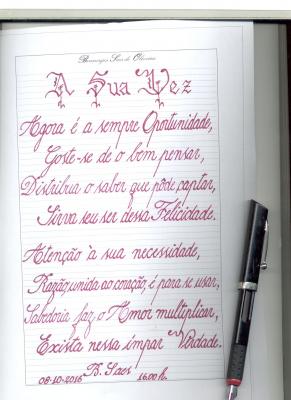 A Sua Vez
Agora é a sempre Oportunidade,
Goste-se de o bem pensar,
Distribua o saber que pôde captar,
Sirva seu ser dessa Felicidade.
Atenção à sua necessidade,
Razão, unida ao coração, é para se usar,
Sabedoria faz o Amor multiplicar,
Exista nessa ímpar Verdade.
B. Saes
08-10-2016 16:00 h.